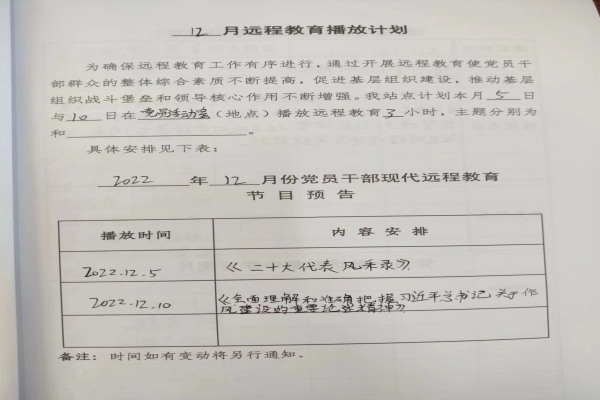 12 月远程教育播放计划
为确保远程教育工作有序进行，通过开展远程教育使党员干
部群众的整体综合素质不断提高，促进基层组织建设，推动基层
组织战斗堡垒和领导核心作用不断增强。我站点计划本月 5 日
与 10 日在 党员活动室 (地点) 播放远程教育 3 小时，主题分别为
和 。
具体安排见下表：
2022 年 12 月份党员干部现代远程教育
节目预告
播放时间 内容安排
2022.12.5 《二十大代表风采录》
2022.12.10 《全面理解和准确把握习近平总书记关于作
风建设的重要论述精神》
备注：时间如有变动将另行通知。